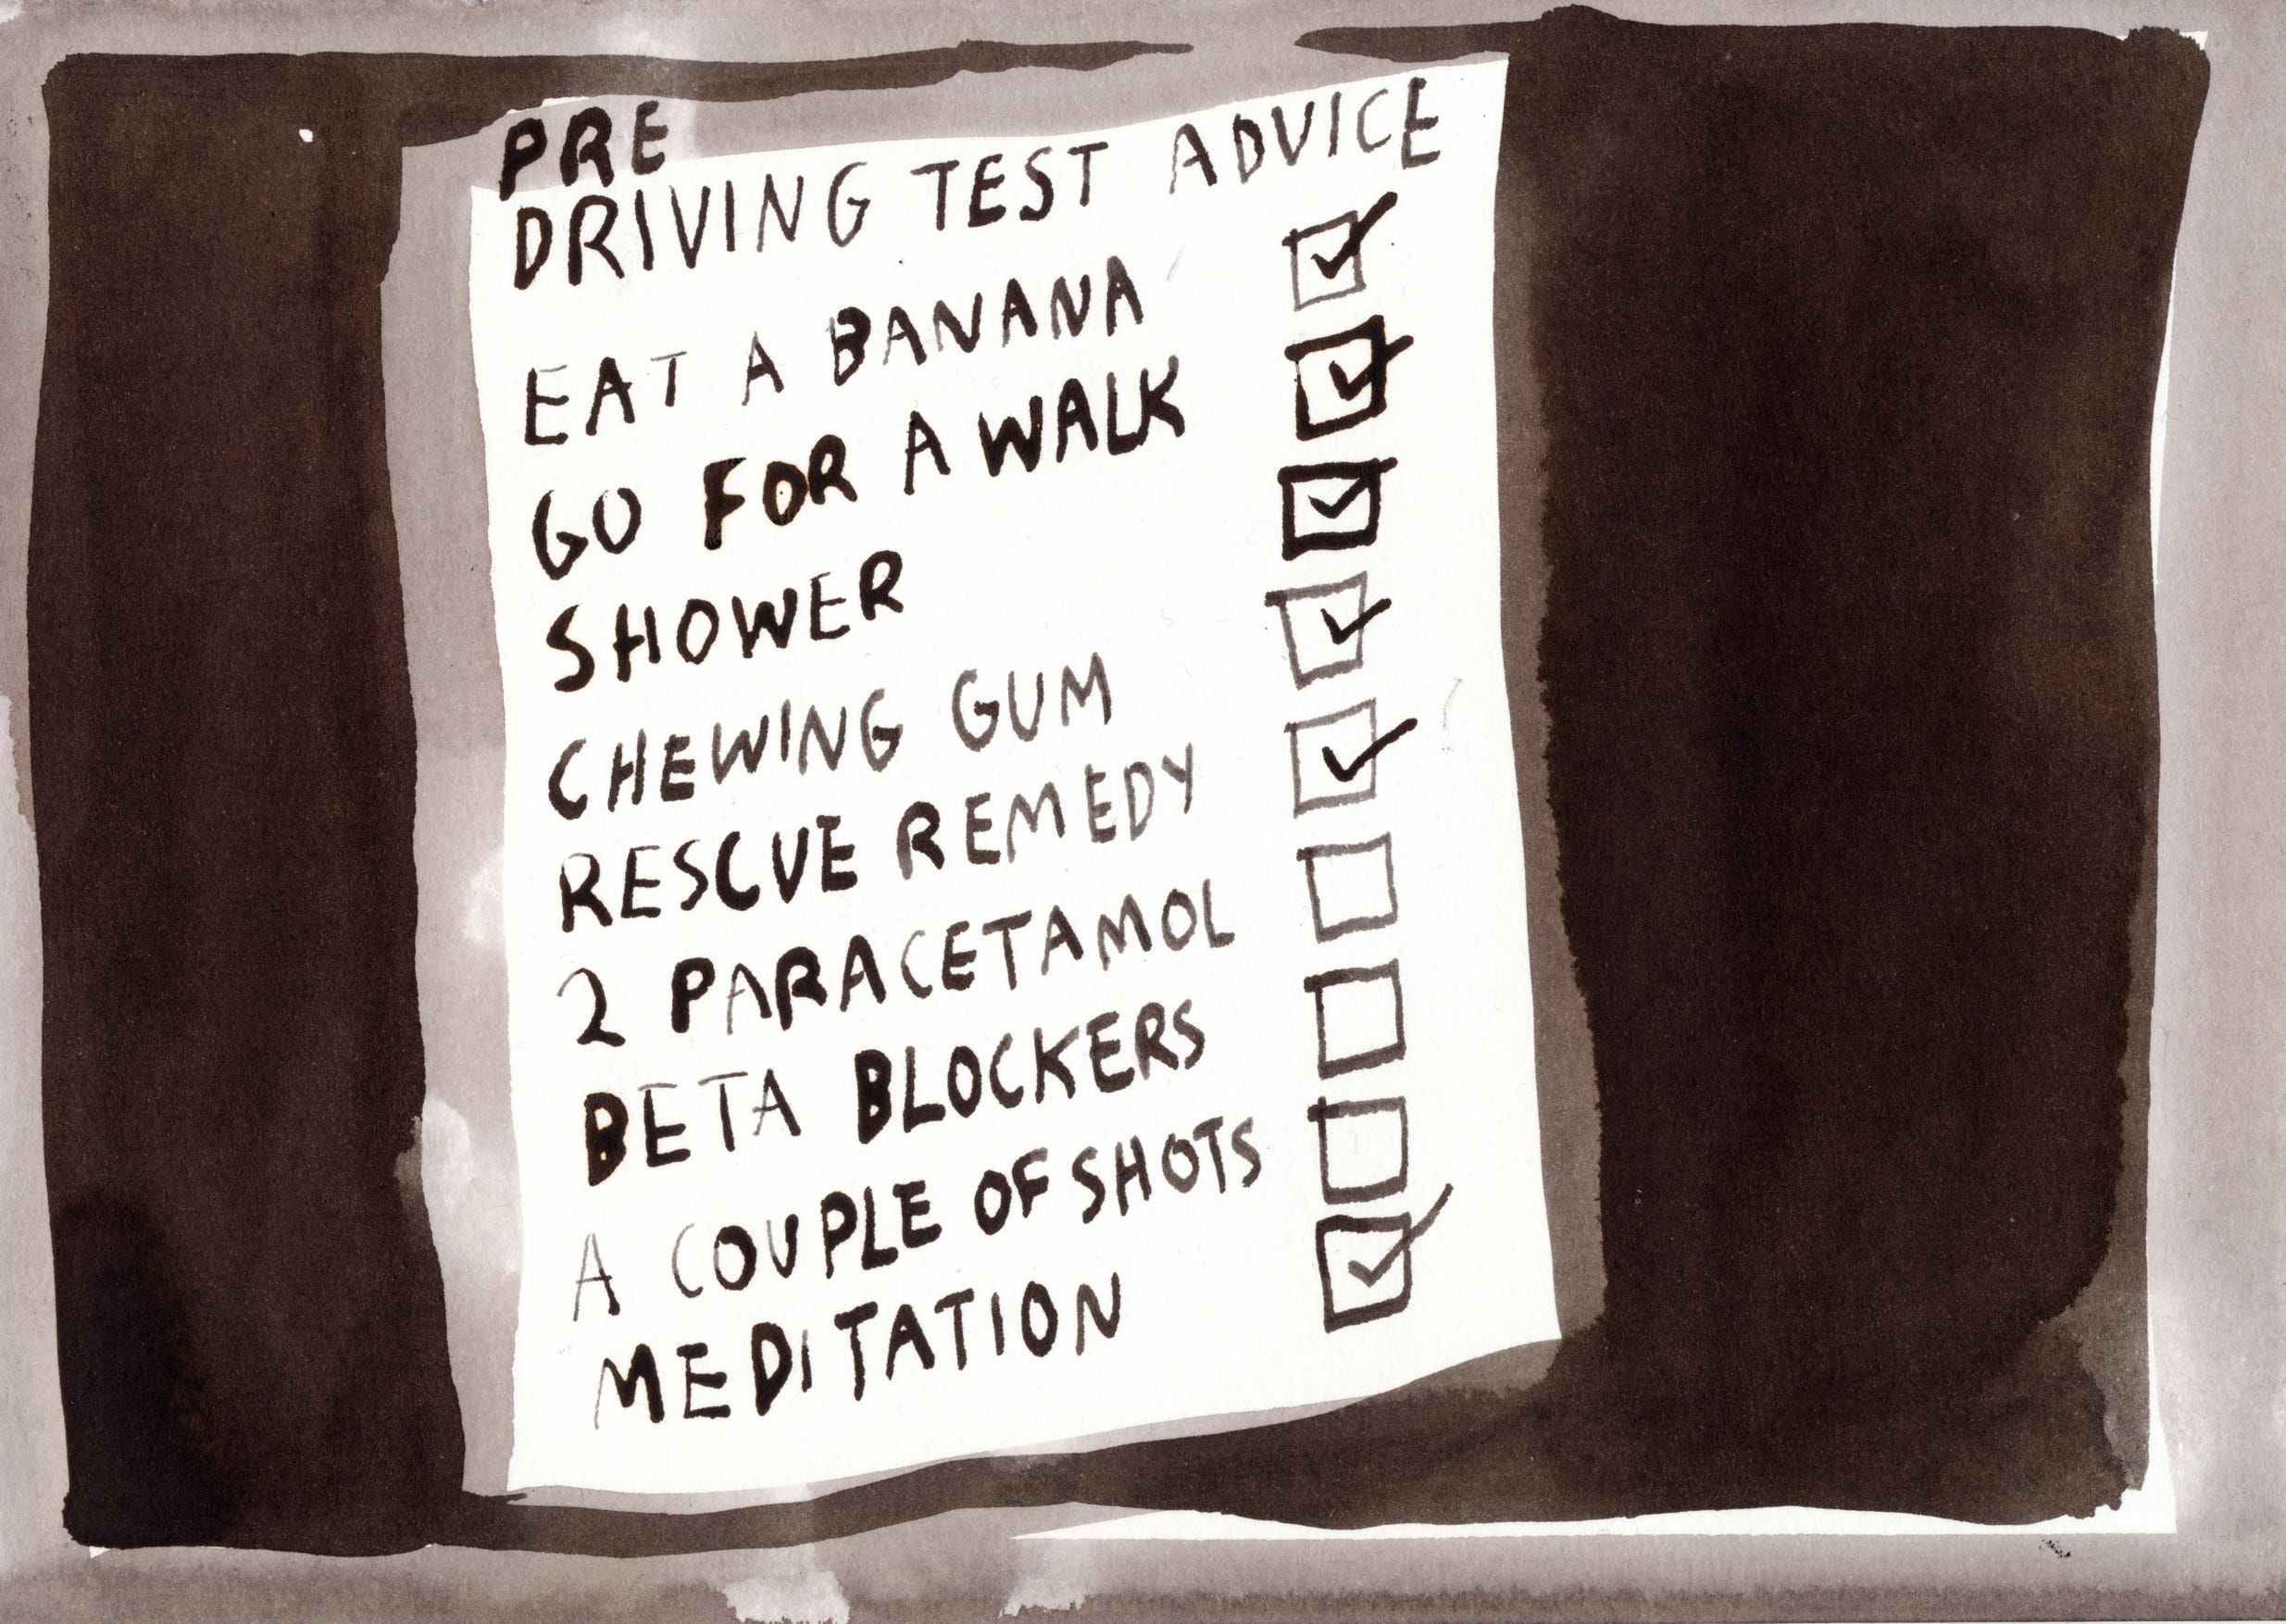 PRE
DRIVING TEST ADVICE
EAT A BANANA
GO FOR A WALK
SHOWER
CHEWING GUM
RESCUE REMEDY
2 PARACETAMOL
BETA BLOCKERS
A COUPLE OF SHOTS
MEDITATION